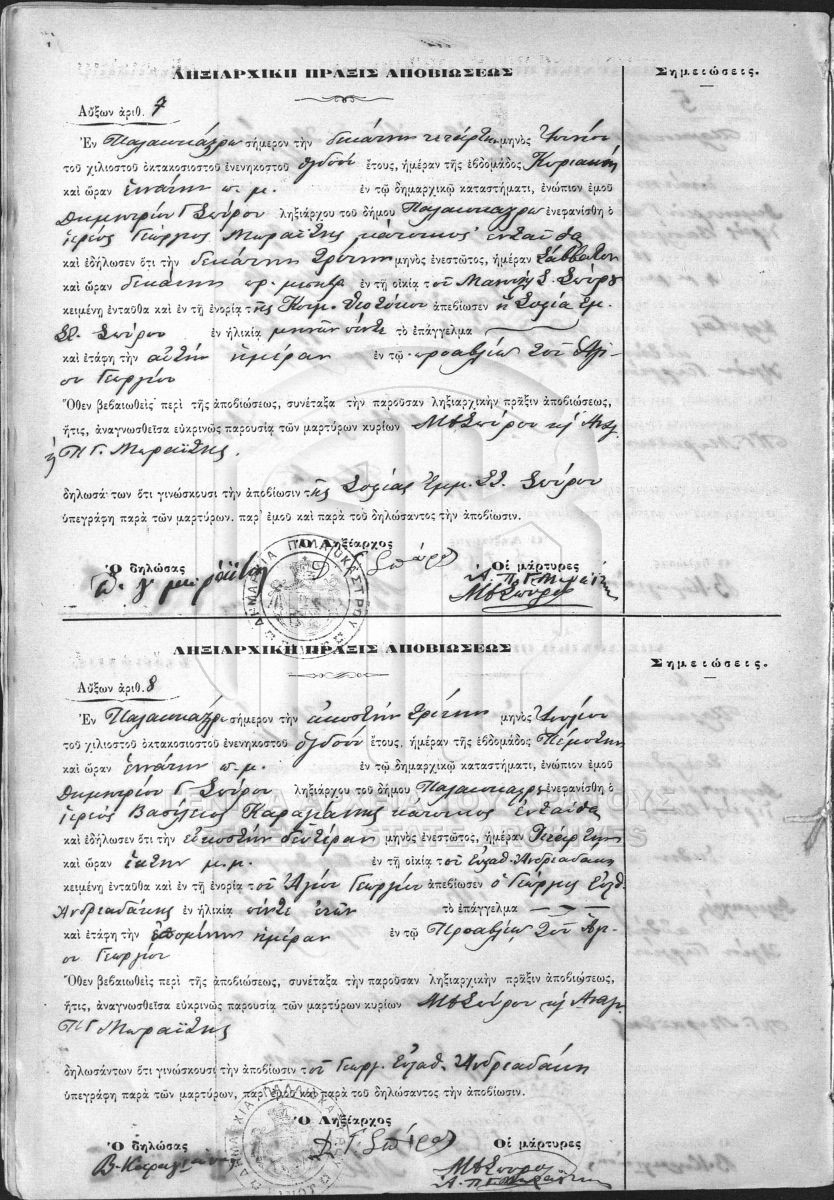 ΛΗΞΙΑΡΧΙΚΗ ΠΡΑΞΙΣ ΑΠΟΒΙΩΣΕΩΣ
Σημειώσεις.
Αὔξων ἀριθ. 7
Ἐν Παλαιοκάστρῳ σήμερον τὴν δεκάτην τετάρτην μηνὸς Ἰουνίου
τοῦ χιλιοστοῦ ὀκτακοσιοστοῦ ἐνενηκοστοῦ ὀγδόου ἔτους, ἡμέραν τῆς ἑβδομάδος Κυριακὴν
καὶ ὥραν ἐννάτην π. μ. ἐν τῷ δημαρχικῷ καταστήματι, ἐνώπιον ἐμοῦ
Δημητρίου Γ. Σπύρου ληξιάρχου τοῦ δήμου Παλαιοκάστρου ἐνεφανίσθη ὁ
ἱερεὺς Γεώργιος Μωραΐτης κάτοικος ἐνταῦθα
καὶ ἐδήλωσεν ὅτι τὴν δεκάτην τρίτην μηνὸς ἐνεστῶτος, ἡμέραν Σάββατον
καὶ ὥραν δεκάτην πρ. μεσημβ. ἐν τῇ οἰκίᾳ τοῦ Μανώλη Σ. Σπύρου
κειμένῃ ἐνταῦθα καὶ ἐν τῇ ἐνορίᾳ τῆς Κοιμ. Θεοτόκου ἀπεβίωσεν ἡ Σοφία Ἐμ.
Στ. Σπύρου ἐν ἡλικίᾳ μηνῶν πέντε τὸ ἐπάγγελμα
καὶ ἐτάφη τὴν αὐτὴν ἡμέραν ἐν τῷ προαυλίῳ τοῦ Ἁγί-
ου Γεωργίου
Ὅθεν βεβαιωθεὶς περὶ τῆς ἀποβιώσεως, συνέταξα τὴν παροῦσαν ληξιαρχικὴν πρᾶξιν ἀποβιώσεως,
ἥτις, ἀναγνωσθεῖσα εὐκρινῶς παρουσίᾳ τῶν μαρτύρων κυρίων Μ Σπύρου κὴ Ἀναγ.
Π Γ. Μωραΐτης.
δηλωσάντων ὅτι γινώσκουσι τὴν ἀποβίωσιν τῆς Σοφίας Ἐμμ. Στ. Σπύρου
ὑπεγράφη παρὰ τῶν μαρτύρων, παρ' ἐμοῦ καὶ παρὰ τοῦ δηλώσαντος τὴν ἀποβίωσιν.
Ὁ Ληξίαρχος
Ὁ δηλώσας Δ Γ Σπύρου Οἱ μάρτυρες
π. γ μωραΐτης Ἀ. Π. Γ. Μωραΐτης
Μ Σπύρου
ΔΗΜΑΡΧΙΑ ΠΑΛΑΙΟΚΑΣΤΡΟΥ
ΛΗΞΙΑΡΧΙΚΗ ΠΡΑΞΙΣ ΑΠΟΒΙΩΣΕΩΣ
Σημειώσεις.
Αὔξων ἀριθ. 8
Ἐν Παλαιοκάστρῳ σήμερον τὴν εἰκοστὴν τρίτην μηνὸς Ἰουλίου
τοῦ χιλιοστοῦ ὀκτακοσιοστοῦ ἐνενηκοστοῦ ὀγδόου ἔτους, ἡμέραν τῆς ἑβδομάδος Πέμπτην
καὶ ὥραν ἐννάτην π. μ. ἐν τῷ δημαρχικῷ καταστήματι, ἐνώπιον ἐμοῦ
Δημητρίου Γ. Σπύρου ληξιάρχου τοῦ δήμου Παλαιοκάστρου ἐνεφανίσθη ὁ
ἱερεὺς Βασίλειος Καραγιάννης κάτοικος ἐνταῦθα
καὶ ἐδήλωσεν ὅτι τὴν εἰκοστὴν δευτέραν μηνὸς ἐνεστῶτος, ἡμέραν Τετάρτην
καὶ ὥραν ἕκτην μ.μ. ἐν τῇ οἰκίᾳ τοῦ Εὐσταθ. Ἀνδρεαδάκη
κειμένῃ ἐνταῦθα καὶ ἐν τῇ ἐνορίᾳ τοῦ Ἁγίου Γεωργίου ἀπεβίωσεν ὁ Γεώργιος Εὐστθ.
Ἀνδρεαδάκης ἐν ἡλικίᾳ πέντε ἐτῶν τὸ ἐπάγγελμα
καὶ ἐτάφη τὴν ἑπομένην ἡμέραν ἐν τῷ Προαυλίῳ τοῦ Ἁγί-
ου Γεωργίου
Ὅθεν βεβαιωθεὶς περὶ τῆς ἀποβιώσεως, συνέταξα τὴν παροῦσαν ληξιαρχικὴν πρᾶξιν ἀποβιώσεως,
ἥτις, ἀναγνωσθεῖσα εὐκρινῶς παρουσίᾳ τῶν μαρτύρων κυρίων Μ Σπύρου κὴ Ἀναγ.
Π Γ Μωραΐτης
δηλωσάντων ὅτι γινώσκουσι τὴν ἀποβίωσιν τοῦ Γεωργ. Εὐσταθ. Ἀνδρεαδάκη
ὑπεγράφη παρὰ τῶν μαρτύρων, παρ' ἐμοῦ καὶ παρὰ τοῦ δηλώσαντος τὴν ἀποβίωσιν.
Ὁ Ληξίαρχος
Ὁ δηλώσας Δ. Γ. Σπύρου Οἱ μάρτυρες
Β. Καραγιάννης Μ Σπύρου
Ἀ. Π. Γ. Μωραΐτης